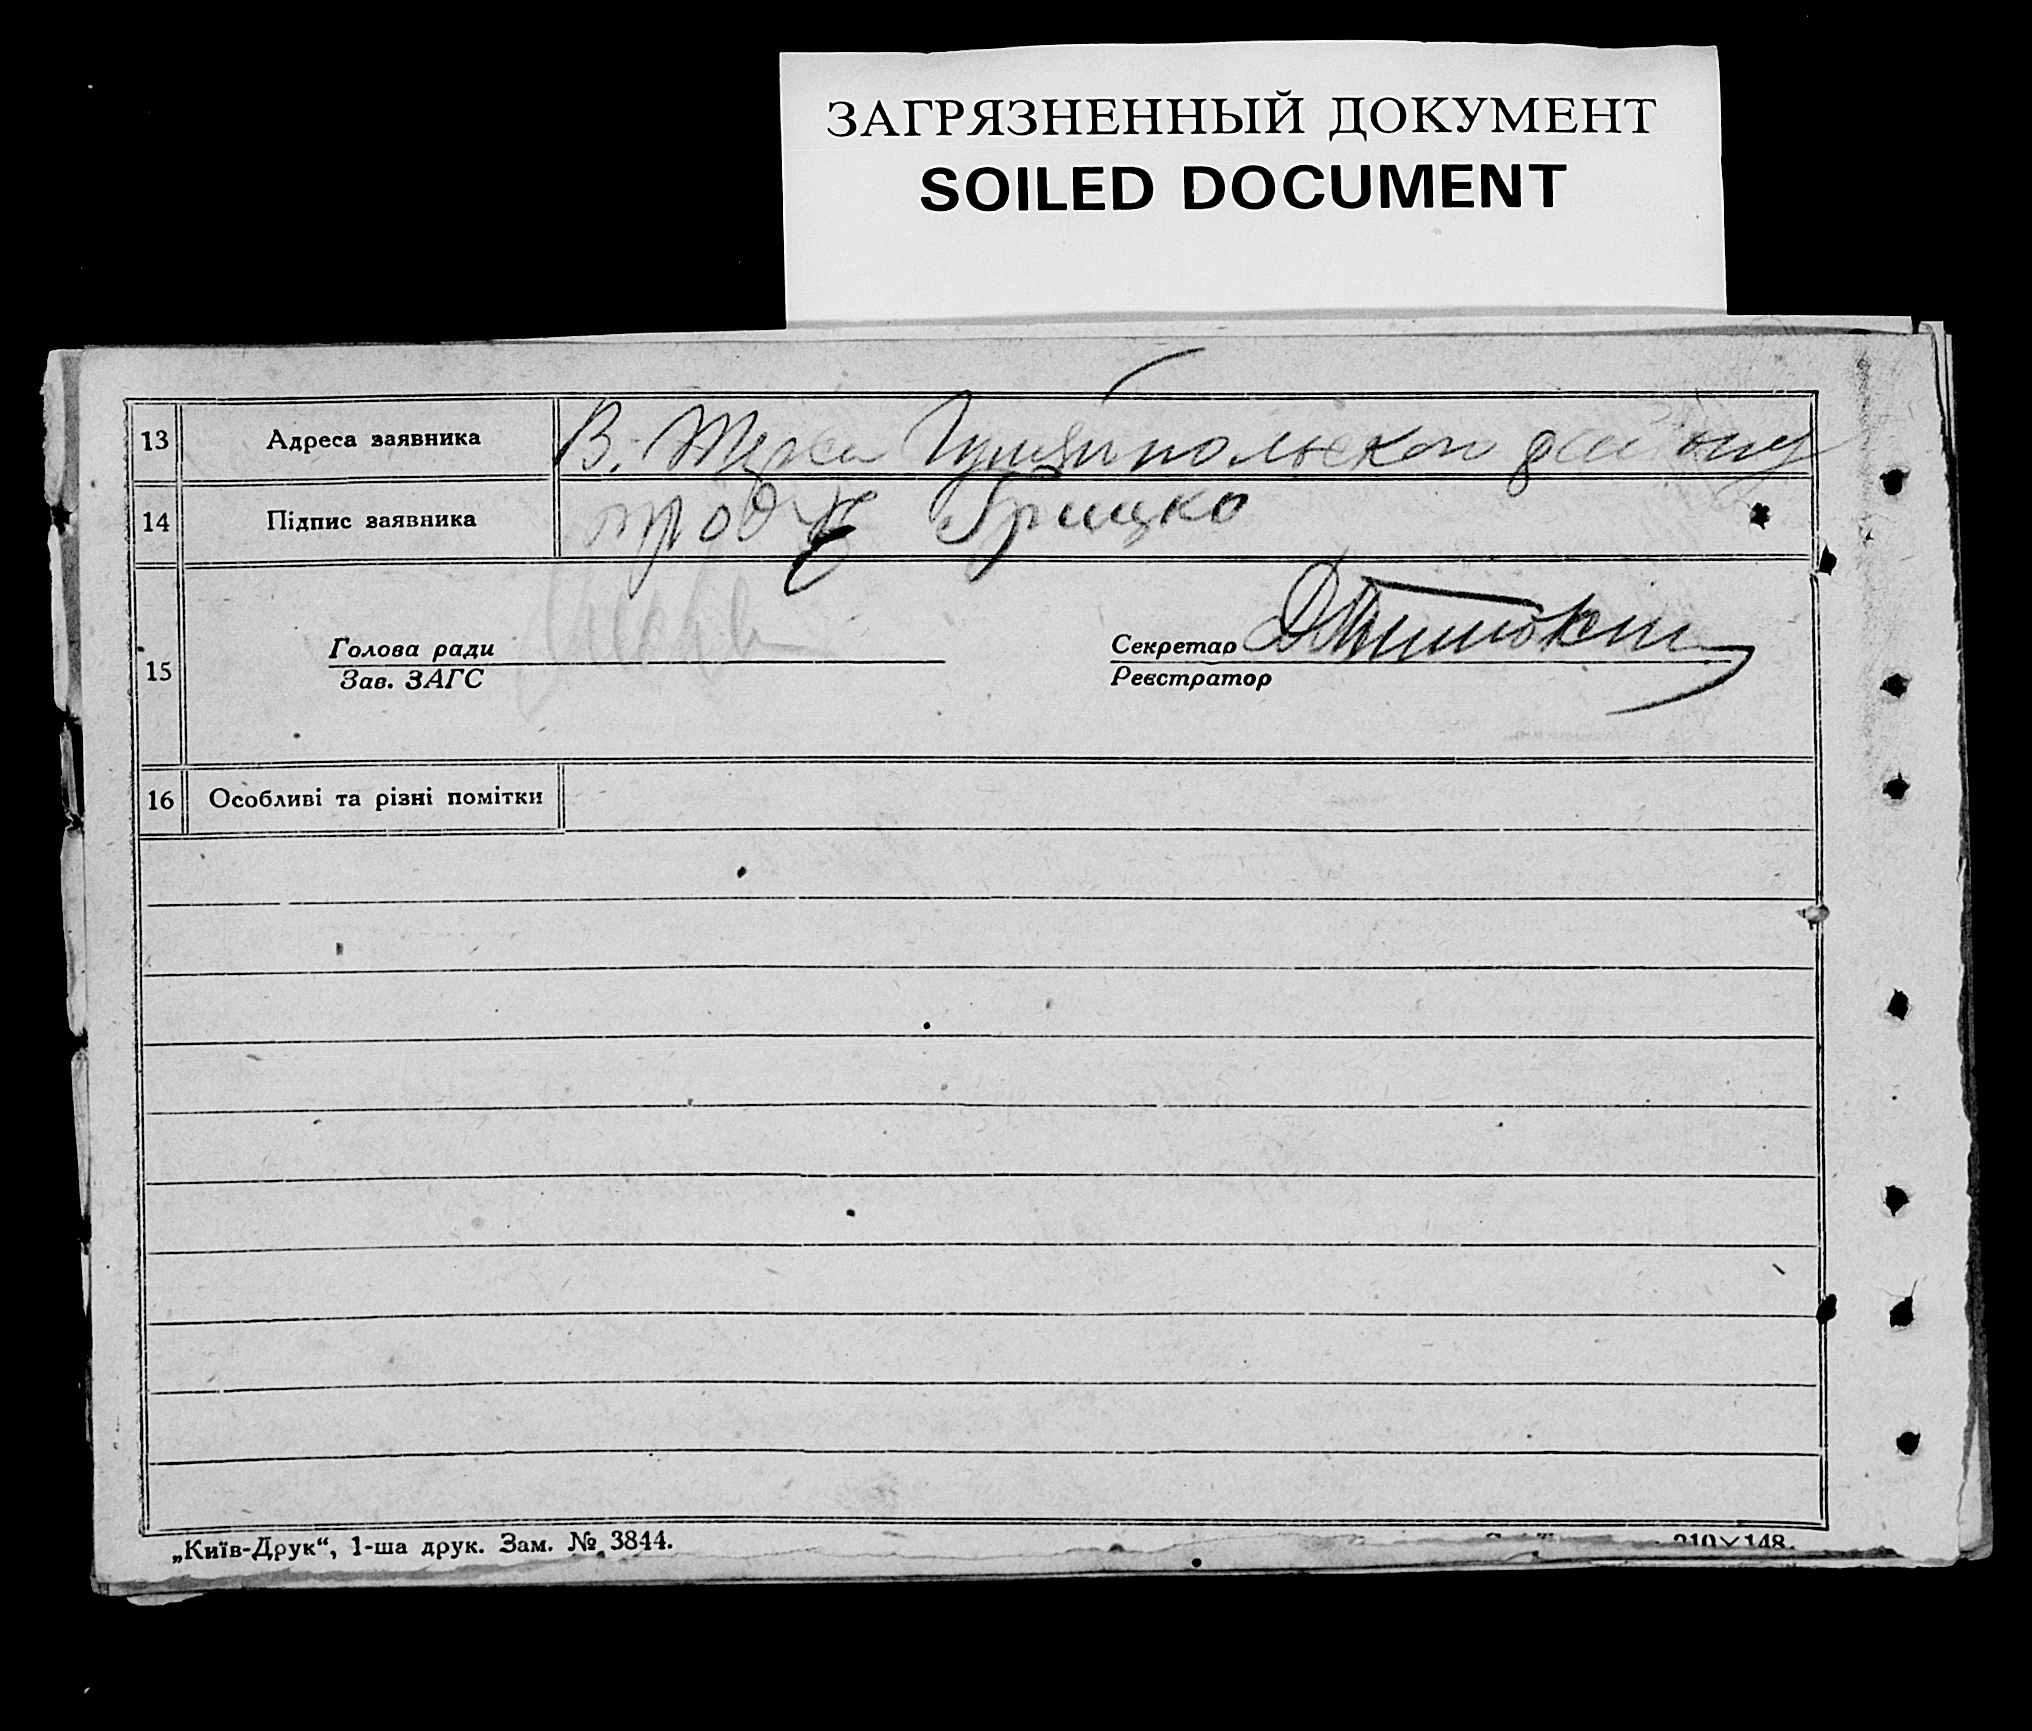 ЗАГРЯЗНЕННЫЙ ДОКУМЕНТ
SOILED DOCUMENT
13 Адреса заявника В. Гуляйпольского району
14 Підпис заявника Грицко
15 Голова ради Секретар
Зав. ЗАГС Реєстратор
16 Особливі та різні помітки
„Київ-Друк“, 1-ша друк. Зам. № 3844.
210×148.